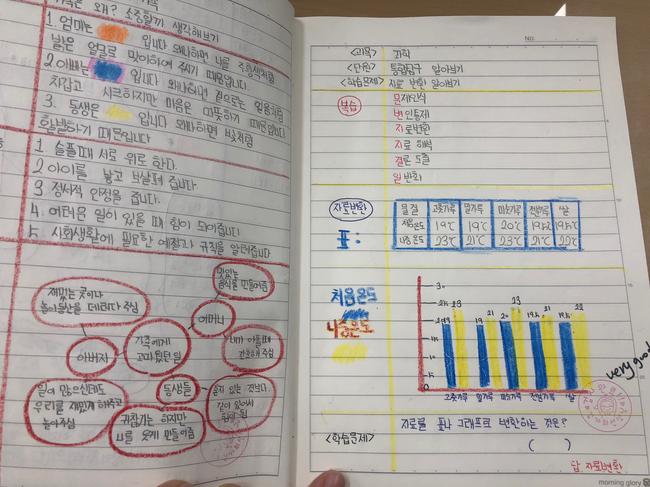 가족은 왜? 소중할까 생각해보기
1. 엄마는 입니다 왜냐하면 나를 주황색처럼
밝은 얼굴로 맞이하여 주기 때문입니다
2. 아빠는 입니다 왜냐하면 겉으로는 얼음처럼
차갑고 시크하지만 마음은 따뜻하기 때문입니다
3. 동생은 입니다 왜냐하면 빛처럼
활발하기 때문입니다
1. 슬플때 서로 위로 한다.
2 아이를 낳고 보살펴 줍니다.
3 정서적 안정을 줍니다.
4. 어려운 일이 있을 때 힘이 되어줍니다
5. 사회생활에 필요한 예절과 규칙을 알려줍니다
맛있는
음식을 만들어줌
재밌는 곳이나
놀이동산을 데려다 주심
어머니
아버지
가족에게
고마웠던 일
내가 아플때
간호해 주심
일이 많으신데도
우리를 재밌게 해주고
놀아주심
동생들
귀찮기는 하지만
나를 웃게 만들어줌
혼자 있는 것보다
같이 있어서
No.
<과목> 과학
<단원> 통합탐구 알아보기
<학습문제> 자료 변환 알아보기
복습
문제인식
변인통제
자료변환
자료 해석
결론 도출
일반화
자료변환
표:
물질 고춧가루 밀가루 미숫가루 전분가루 쌀
처음온도 19℃ 19℃ 20℃ 19℃ 19℃
나중온도 23℃ 21℃ 23℃ 21℃ 22℃
처음온도
나중온도
30
23 23 22
19 19 21 20 19 21 19
0
고춧가루 밀가루 미숫가루 전분가루 쌀
very good
자료를 표나 그래프로 변환하는 것은?
<학습문제> ( )
답 자료변환
morning glory